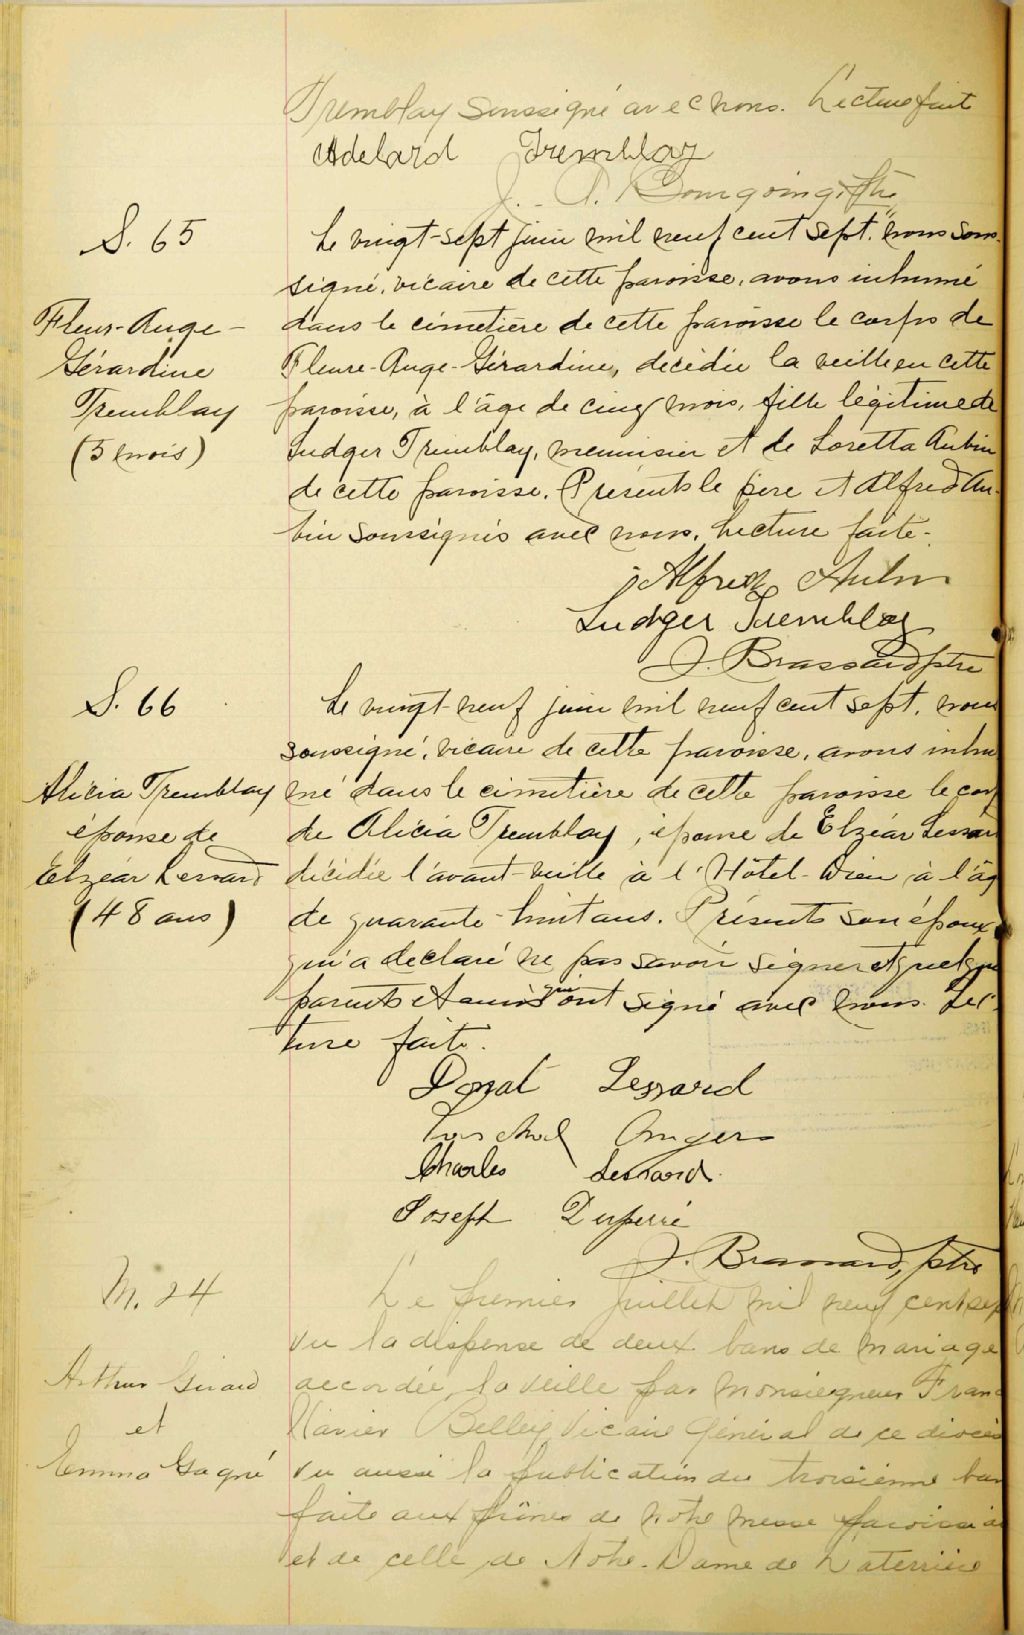 Tremblay soussigné avec nous. Lecture faite
Adelard Tremblay
J. A. Bourgoing, Ptre
S. 65
Fleur-Ange-
Gérardine
Tremblay
(5 mois)
Le vingt-sept juin mil neuf cent sept, nous sous-
signé, vicaire de cette paroisse, avons inhumé
dans le cimetière de cette paroisse le corps de
Fleure-Ange-Gérardine, décédée la veille en cette
paroisse, à l'âge de cinq mois, fille légitime de
Ludger Tremblay, menuisier et de Loretta Aubin
de cette paroisse. Présents le père et Alfred Au-
bin soussignés avec nous, Lecture faite.
Alfred Aubin
Ludger Tremblay
J. Brassard ptre
S. 66
Alicia Tremblay
épouse de
Elzéar Lessard
(48 ans)
Le vingt-neuf juin mil neuf cent sept, nous
soussigné, vicaire de cette paroisse, avons inhu
mé dans le cimetière de cette paroisse le corp
de Alicia Tremblay, épouse de Elzéar Lessar
décédée l'avant-veille à l'Hôtel-Dieu à l'âg
de quarante-huit ans. Présents son époux
qui a déclaré ne pas savoir signer et quelque
parents et amis qui ont signé avec nous. Lec-
ture faite.
Donat Lessard
Angers
Charles Lessard
Joseph Duperré
J. Brassard, ptre
M. 24
Arthur Girard
et
Emma Gagné
Le premier Juillet mil neuf cent sept
vu la dispense de deux bans de mariage
accordée la veille par Monseigneur Franc
Xavier Belley Vicaire Général de ce diocès
vu aussi la publication du troisième ban
faite aux prônes de notre messe paroissia
et de celle de Notre-Dame de Laterrière